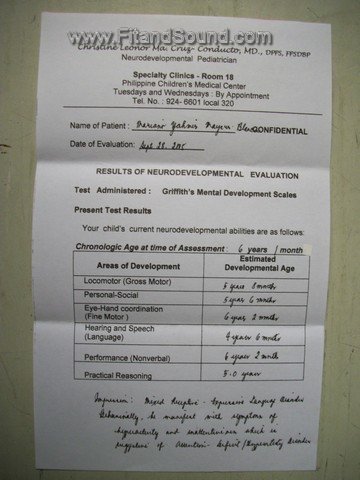 www.FitandSound.com
Christine Leonor Ma. Cruz-Conducto, MD., DPPS, FPSDBP
Neurodevelopmental Pediatrician
Specialty Clinics - Room 18
Philippine Children's Medical Center
Tuesdays and Wednesdays : By Appointment
Tel. No. : 924- 6601 local 320
Name of Patient : CONFIDENTIAL
Date of Evaluation: Sept 28,
RESULTS OF NEURODEVELOPMENTAL EVALUATION
Test Administered : Griffith's Mental Development Scales
Present Test Results
Your child's current neurodevelopmental abilities are as follows:
Chronologic Age at time of Assessment : 6 years 1 month
Areas of Development
Estimated
Developmental Age
Locomotor (Gross Motor) 5 years 8 months
Personal-Social 5 years 6 months
Eye-Hand coordination
(Fine Motor ) 6 years 2 months
Hearing and Speech
(Language) 4 years 6 months
Performance (Nonverbal) 6 years 2 months
Practical Reasoning 5.0 years
Impression: Mixed Receptive - Expressive Language Disorder
Behaviorally, he manifest with symptoms of
hyperactivity and inattentiveness which is
suggestive of Attention- Deficit/Hyperactivity Disorder